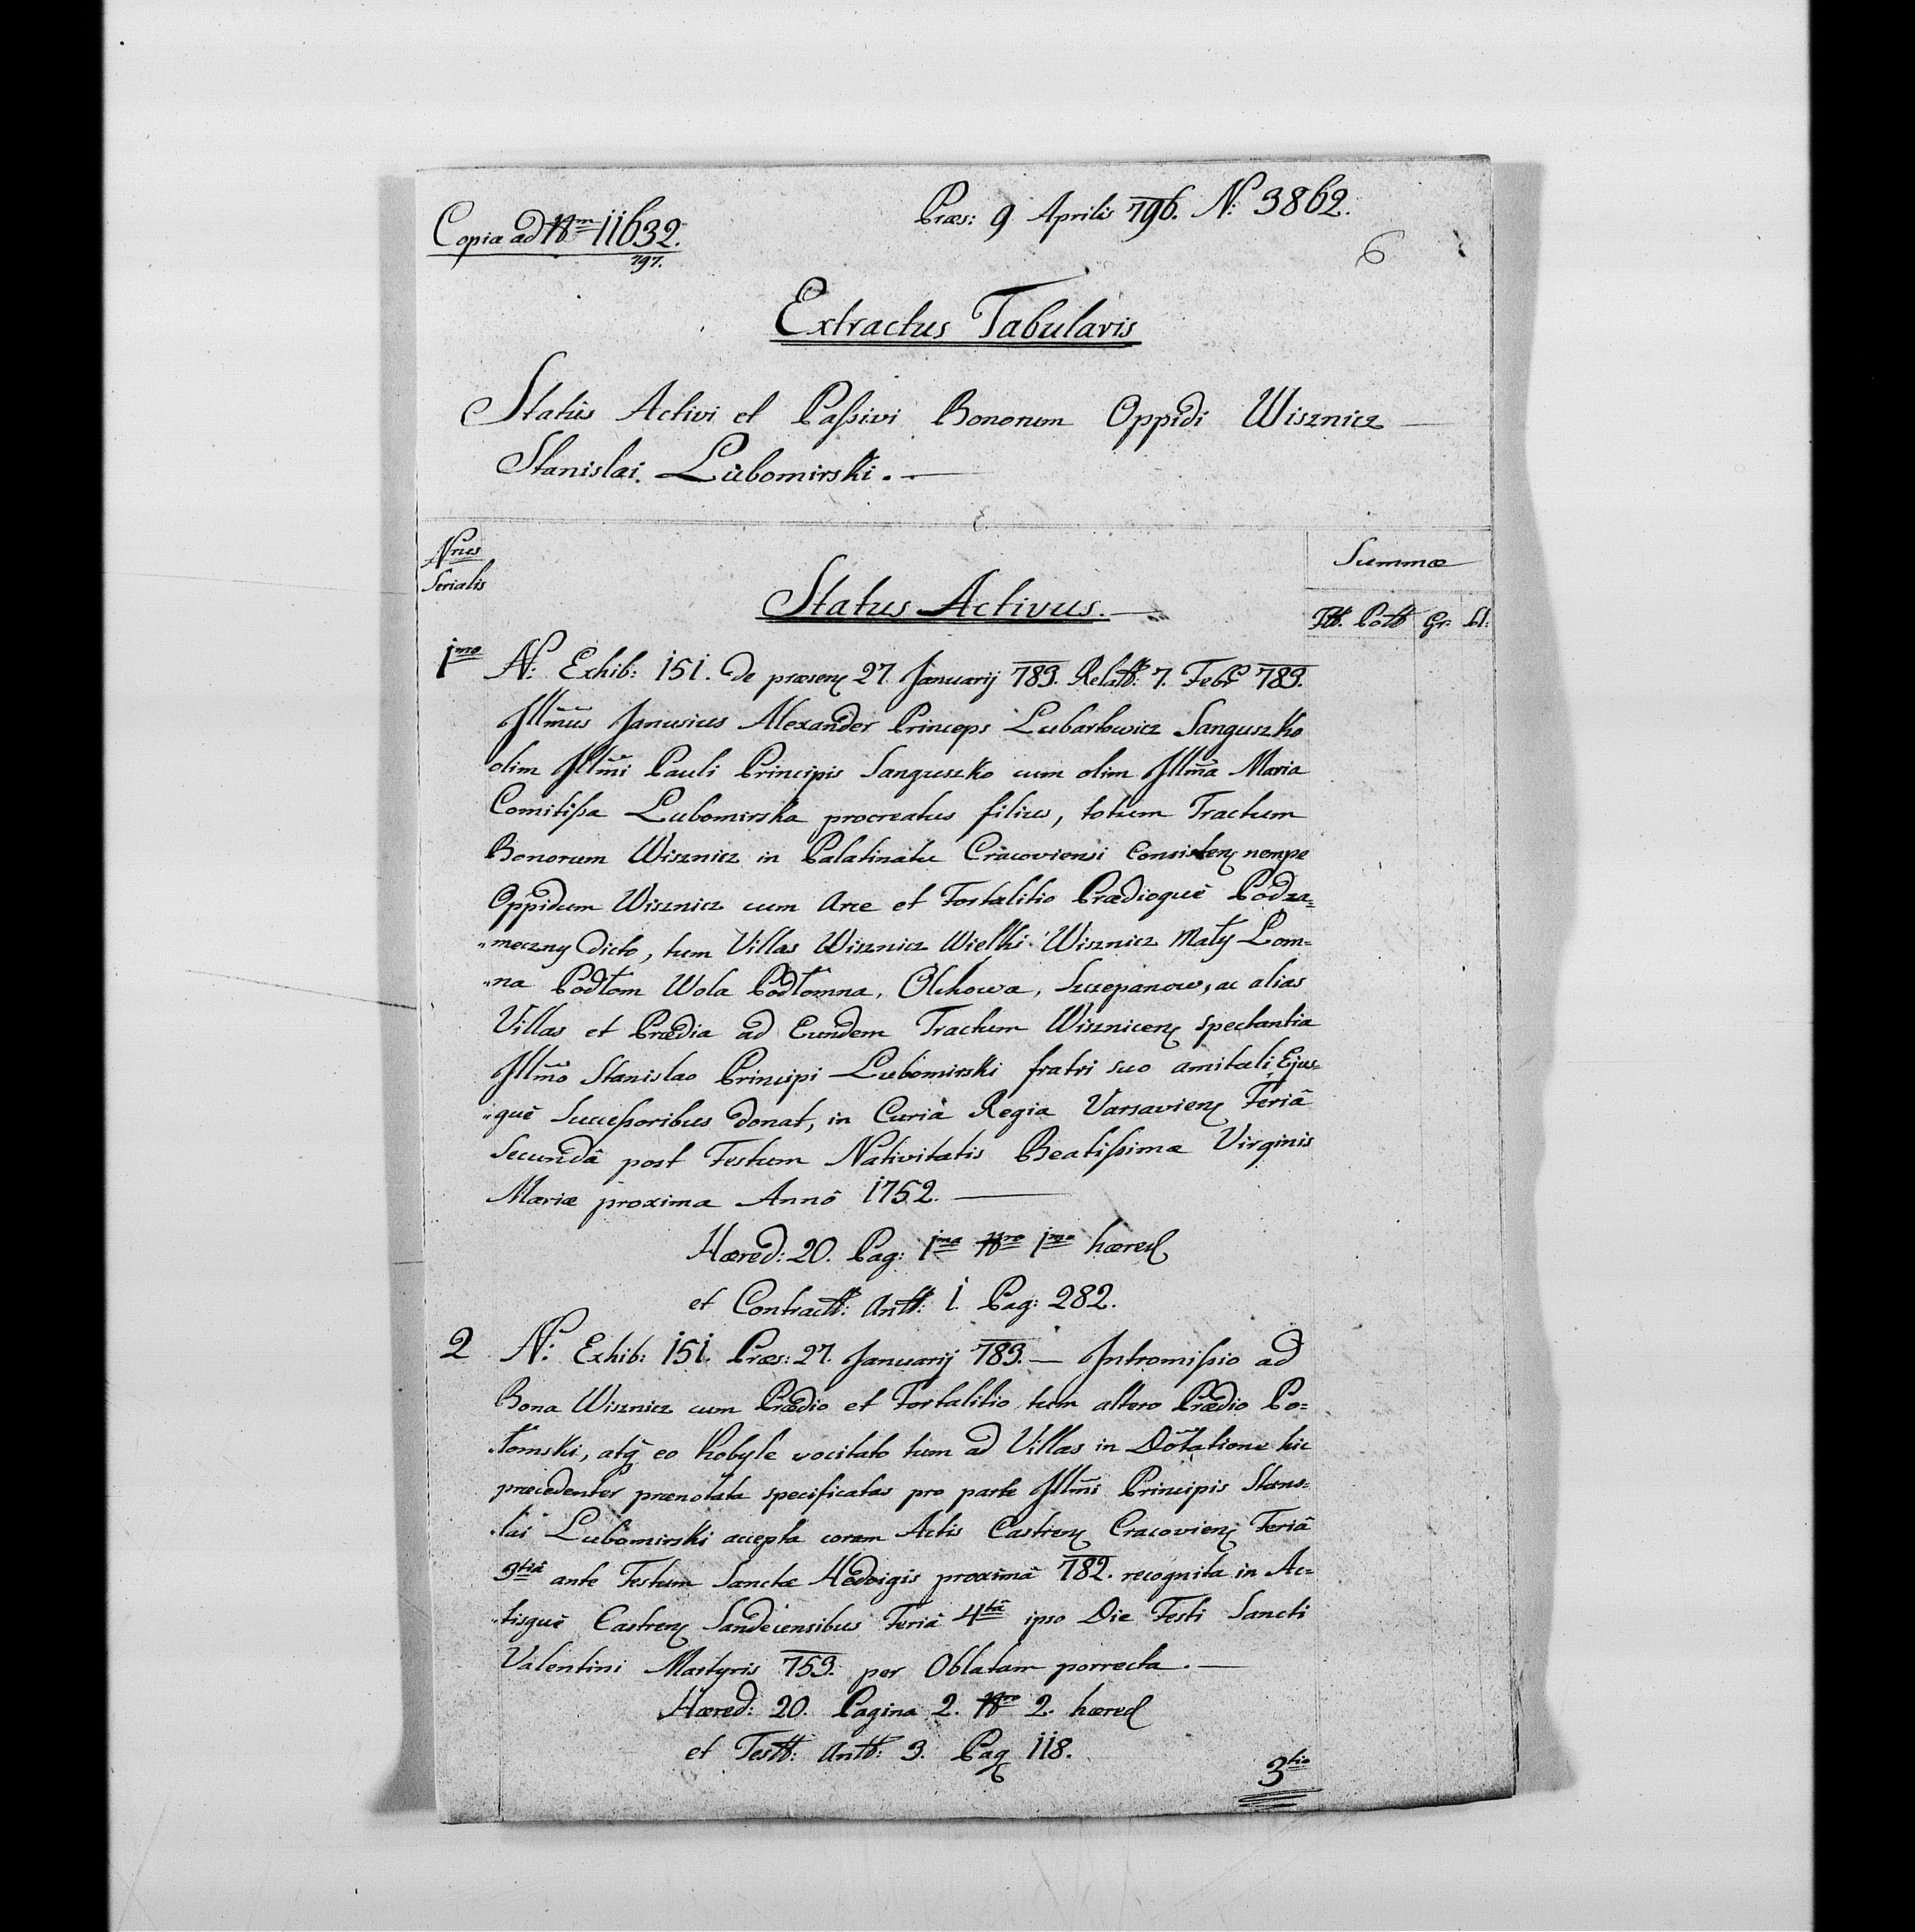 Copia ad Nrm 11632.
797.
Præs: 9 Aprilis 796. N: 3862.
6
Extractus Tabularis
Statûs Activi et Paßivi Bonorum Oppidi Wisznicz —
Stanislai Lubomirski. —
Nrus
Serialis
Summæ
Status Activus. —
Gr. ₰:
1mo N: Exhib: 151. de præsen 27 Januarij 783. Relatt: 7. Febr 783.
Illmus Janusius Alexander Princeps Lubartowicz Sanguszko
olim Illmi Pauli Principis Sanguszko cum olim Illma Maria
Comitißa Lubomirska procreatus filius, totum Tractum
Bonorum Wisznicz in Palatinatu Cracoviensi Consisten nempe
Oppidum Wisznicz cum Arce et Fortalitio Prædioquè Podza=
"meczny dicto, tum Villas Wisznicz Wielki Wisznicz Mały Lom=
"na Podłom Wola Podłomna, Olchowa, Szczepanow, ac alias
Villas et Prædia ad Eundem Tractum Wisznicen spectantia
Illmo Stanislao Principi Lubomirski fratri suo amitali, Ejus=
"què Succeßoribus donat, in Curia Regia Varsavien Feriâ
Secundâ post Festum Nativitatis Beatißimæ Virginis
Mariæ proxima Annô 1752. —
Hæred: 20. Pag: 1ma Nro 1mo hæred
et Contractt: Antt: 1. Pag: 282.
2 N: Exhib: 151. Præs: 27. Januarij 783. — Intromißio ad
Bona Wisznicz cum Prædio et Fortalitio tum altero Prædio Po=
"łomski, atq eo Kobyle vocitato tum ad Villas in Donatione hic
præcedenter prænotata specificatas pro parte Illmi Principis Stanis=
"lai Lubomirski accepta coram Actis Castren Cracovien Feriâ
3tiâ ante Festum Sanctæ Hedvigis proximâ 782. recognita in Ac=
"tisquè Castren Sandecensibus Feriâ 4tâ ipso Die Festi Sancti
Valentini Martyris 753. per Oblatam porrecta. —
Hæred: 20. Pagina 2. Nro 2. hæred
et Testt: Antt: 3. Pag 118.
3tio